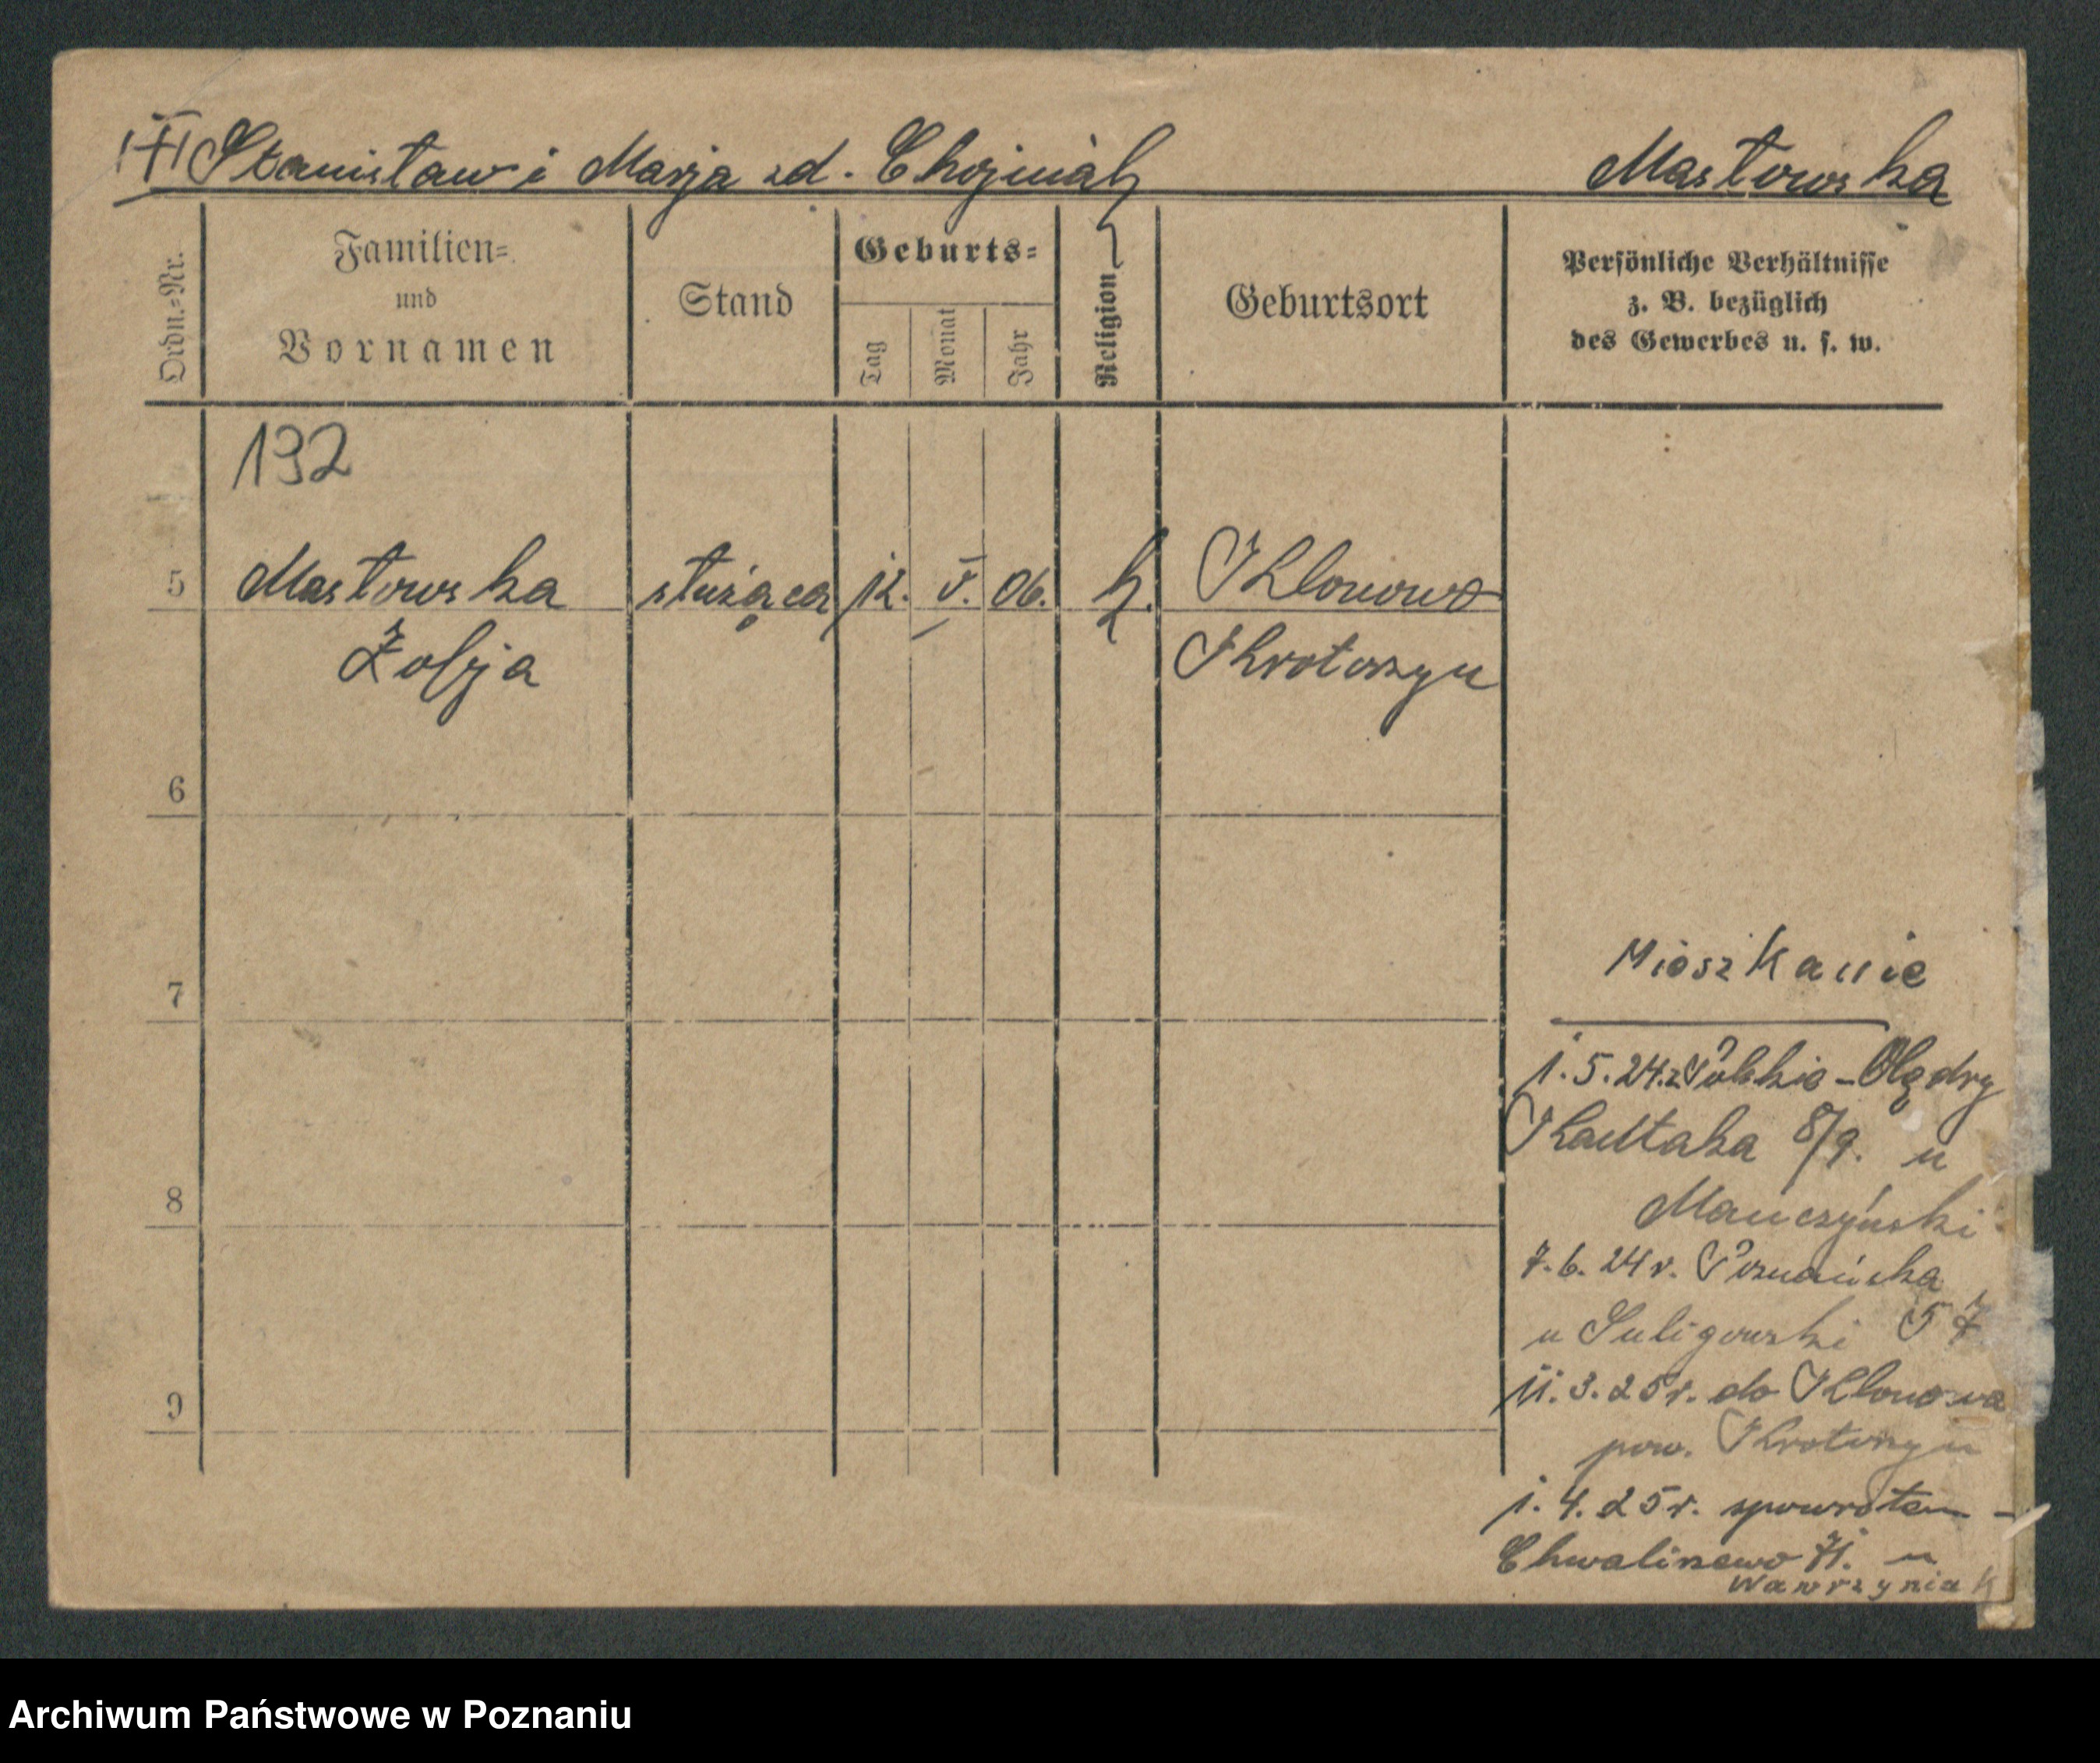 Stanisław i Marja zd. Chojniak
Masłowska
Ordn.=Nr.
Familien=
und
Vornamen
Stand
Geburts=
Tag
Monat
Jahr
Religion
Geburtsort
Persönliche Verhältnisse
z. B. bezüglich
des Gewerbes u. s. w.
192
5 Masłowska służąca 12. V. 06. k. Klonowo
Zofja Krotoszyn
6
7
Mieszkanie
1.5.24. z Polskie-Olędry
Kołłątaja 8/9. u
Mańczyński
8
7.6.24 r. Poznańska
u Suligowski 57
9
11.3.25 r. do Klonowa
pow. Krotoszyn
1.4.25 r. spowrotem -
Chwaliszewo 71. u
Wawrzyniak
Archiwum Państwowe w Poznaniu